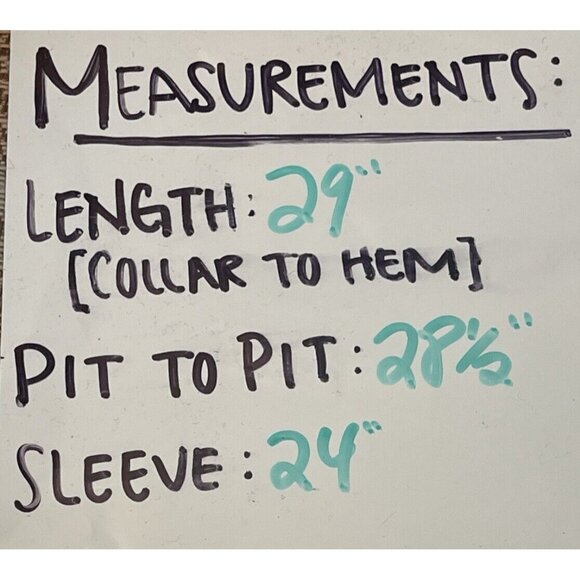 MEASUREMENTS:
LENGTH: 29"
[COLLAR TO HEM]
PIT TO PIT: 28½"
SLEEVE: 24"